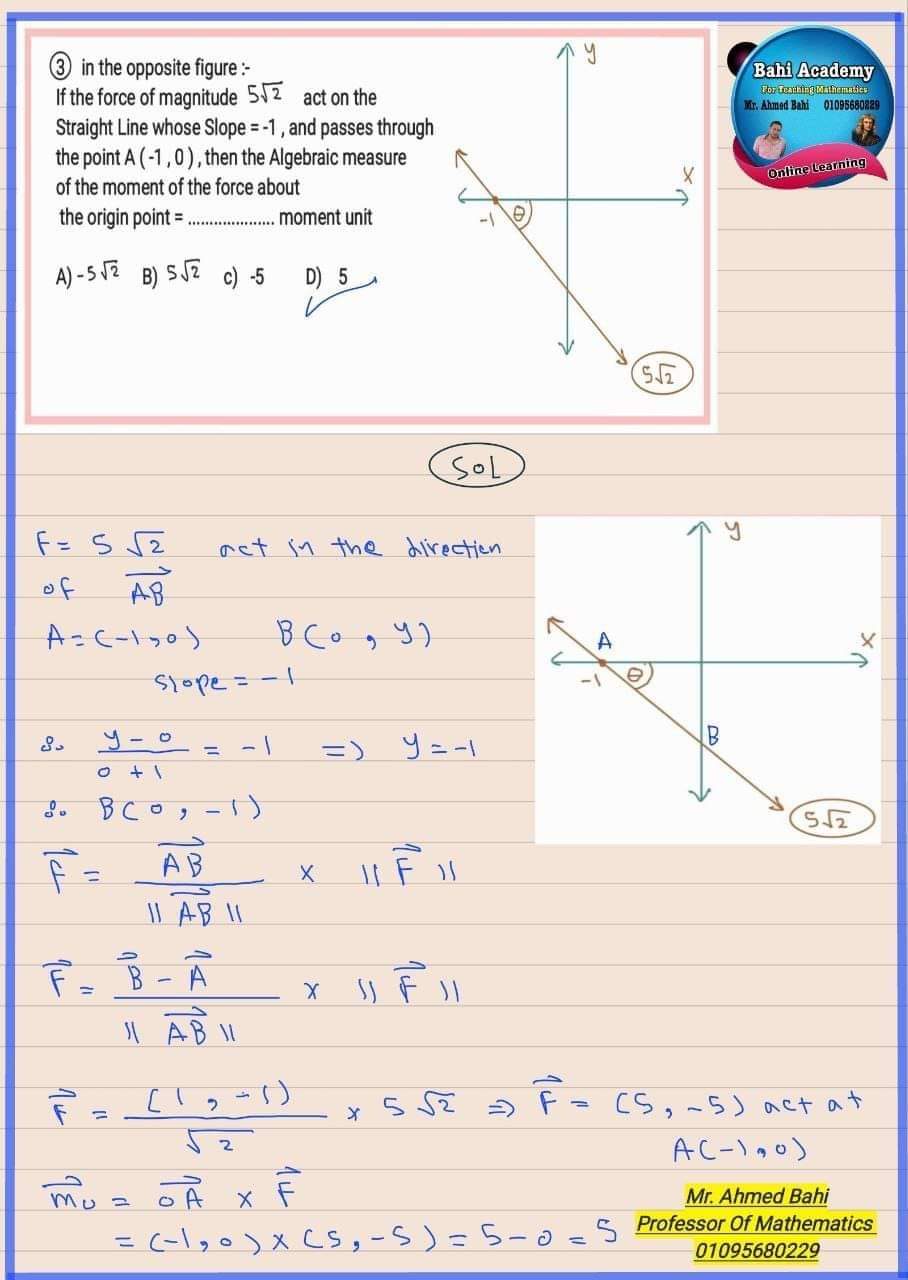 ③ in the opposite figure :-
If the force of magnitude 5√2 act on the
Straight Line whose Slope = -1 , and passes through
the point A ( -1 , 0 ) , then the Algebraic measure
of the moment of the force about
the origin point = .................... moment unit
A) -5√2 B) 5√2 c) -5 D) 5
y
x
-1 θ
5√2
Bahi Academy
For Teaching Mathematics
Mr. Ahmed Bahi 01095680229
Online Learning
SOL
F = 5√2 act in the direction
of AB
A = (-1, 0) B(0, y)
slope = -1
∴ y-0 / 0+1 = -1 => y = -1
∴ B(0, -1)
y
x
A
-1 θ
B
5√2
F = AB / ||AB|| x ||F||
F = B - A / ||AB|| x ||F||
F = (1, -1) / √2 x 5√2 => F = (5, -5) act at
A(-1, 0)
mo = OA x F
= (-1, 0) x (5, -5) = 5 - 0 = 5
Mr. Ahmed Bahi
Professor Of Mathematics
01095680229